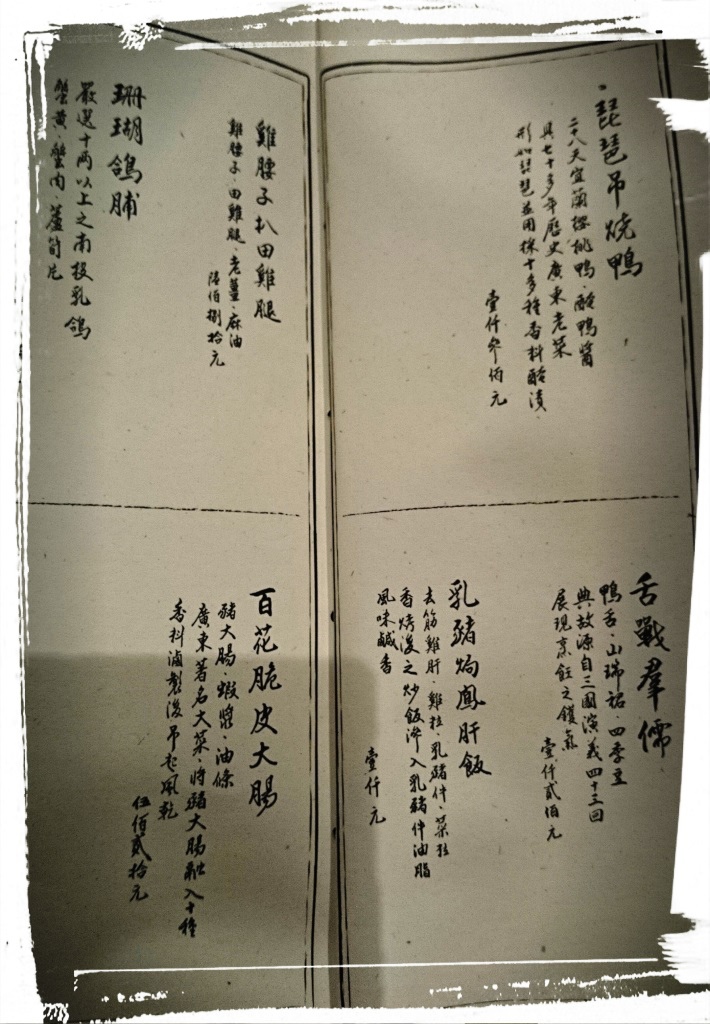 琵琶吊燒鴨
二十八天宜蘭櫻桃鴨．酸鴨醬
具七十多年歷史廣東老菜
形如琵琶並用採十多種香料醃漬．
壹仟參佰元
雞腰子扒田雞腿
雞腰子．田雞腿．老薑．麻油
陸佰捌拾元
珊瑚鴿脯
嚴選十兩以上之南投乳鴿
蟹黃．蟹肉．蘆筍片
舌戰羣儒
鴨舌．山瑞裙．四季豆
典故源自三國演義四十三回
展現烹飪之鑊氣
壹仟貳佰元
乳豬焗鳳肝飯
去筋雞肝．雞粒．乳豬件．菜粒
香烤後之炒飯滲入乳豬件油脂
風味鹹香
壹仟元
百花脆皮大腸
豬大腸．蝦漿．油條
廣東著名大菜．將豬大腸融入十種
香料滷製後吊起風乾
伍佰貳拾元